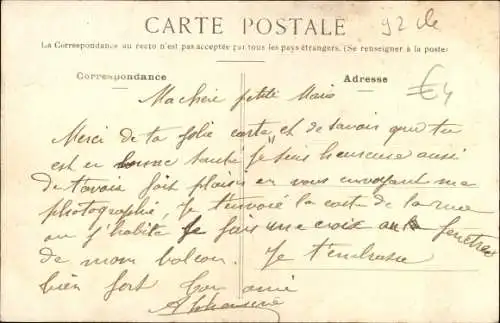 CARTE POSTALE
92 de
La Correspondance au recto n'est pas acceptée par tous les pays étrangers. (Se renseigner à la poste)
Correspondance
Adresse
€4
Ma chère petite
Merci de ta jolie carte et de savoir que tu
est en bonne santé je suis heureuse aussi
de t'avoir fait plaisir en vous envoyant ma
photographie, Je t'envoie la carte de la rue
ou j'habite Je fais une croix au fenêtres
de mon balcon. Je t'embrasse
bien fort Ton amie